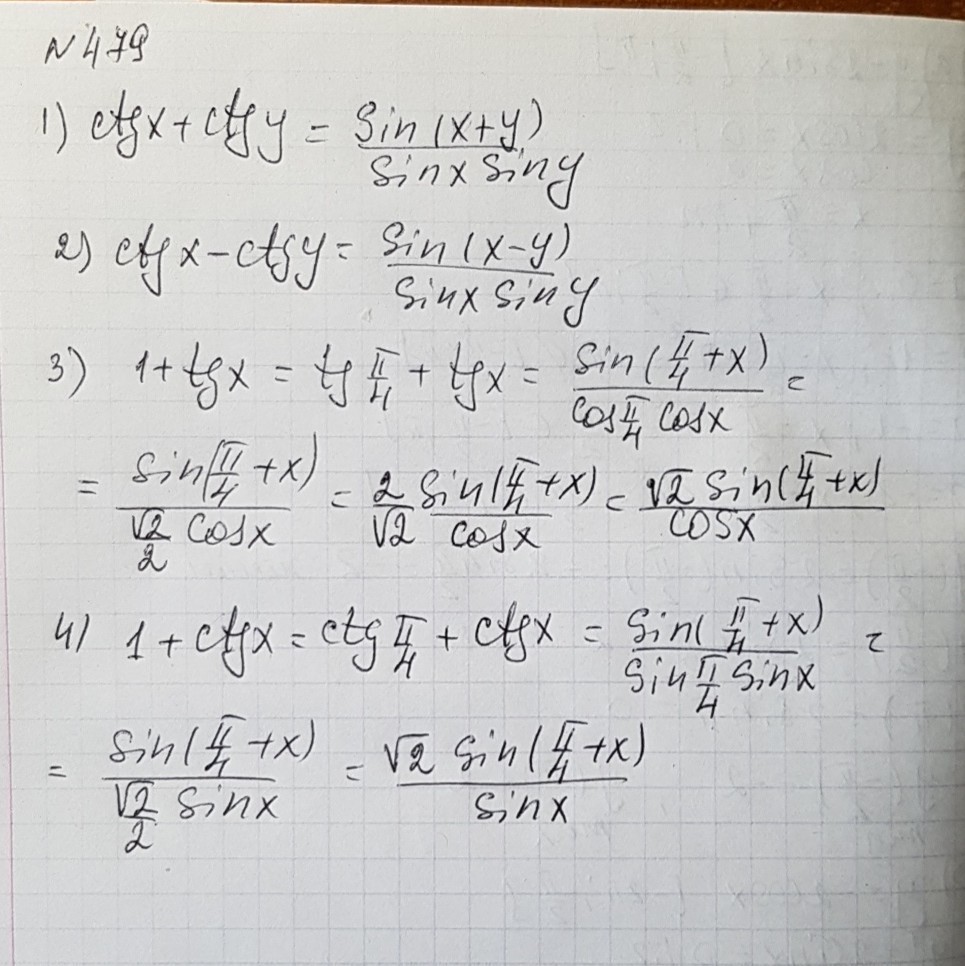 N479
1) ctgx + ctgy = sin(x+y) / sinx siny
2) ctgx - ctgy = sin(x-y) / sinx siny
3) 1 + tgx = tg π/4 + tgx = sin(π/4 + x) / cos π/4 cosx =
= sin(π/4 + x) / √2/2 cosx = 2/√2 sin(π/4 + x) / cosx = √2 sin(π/4 + x) / cosx
4) 1 + ctgx = ctg π/4 + ctgx = sin(π/4 + x) / sin π/4 sinx =
= sin(π/4 + x) / √2/2 sinx = √2 sin(π/4 + x) / sinx